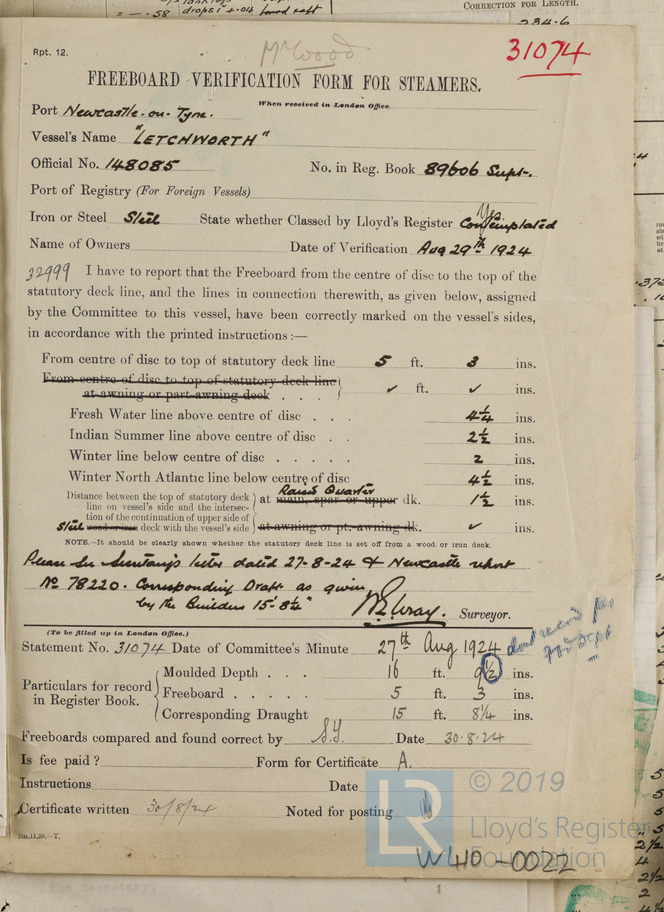 CORRECTION FOR LENGTH.
234.6
Rpt. 12.
McWood
31074
FREEBOARD VERIFICATION FORM FOR STEAMERS.
When received in London Office
Port Newcastle-on-Tyne.
Vessel's Name "LETCHWORTH"
Official No. 148085 No. in Reg. Book 89606 Supt.
Port of Registry (For Foreign Vessels)
Iron or Steel Steel State whether Classed by Lloyd's Register Contemplated Yes
Name of Owners Date of Verification Aug 29th 1924
32999 I have to report that the Freeboard from the centre of disc to the top of the
statutory deck line, and the lines in connection therewith, as given below, assigned
by the Committee to this vessel, have been correctly marked on the vessel's sides,
in accordance with the printed instructions:—
From centre of disc to top of statutory deck line 5 ft. 3 ins.
From centre of disc to top of statutory deck line
at awning or part-awning deck . . . ✓ ft. ✓ ins.
Fresh Water line above centre of disc . . . 4 1/4 ins.
Indian Summer line above centre of disc . . 2 1/2 ins.
Winter line below centre of disc . . . . . 2 ins.
Winter North Atlantic line below centre of disc 4 1/2 ins.
Distance between the top of statutory deck
line on vessel's side and the intersec-
tion of the continuation of upper side of
Steel wood or iron deck with the vessel's side
Raised Quarter
at main, spar or upper dk. 1 1/2 ins.
at awning or pt.-awning dk. ✓ ins.
NOTE.—It should be clearly shown whether the statutory deck line is set off from a wood or iron deck.
Please See Secretary's letter dated 27-8-24 & Newcastle report
No 78220. Corresponding Draft as given
by the Builders 15'-8½"
Surveyor.
(To be filled up in London Office.)
Statement No. 31074 Date of Committee's Minute 27th Aug 1924
Particulars for record
in Register Book.
Moulded Depth . . . 16 ft. 9½ ins.
Freeboard . . . . . 5 ft. 3 ins.
Corresponding Draught 15 ft. 8¼ ins.
Freeboards compared and found correct by S.Y. Date 30.8.24
Is fee paid? Form for Certificate A.
Instructions Date
Certificate written 30/8/24 Noted for posting
2m,11,20.—T.
LR
© 2019
Lloyd's Register
Foundation
W410-0022